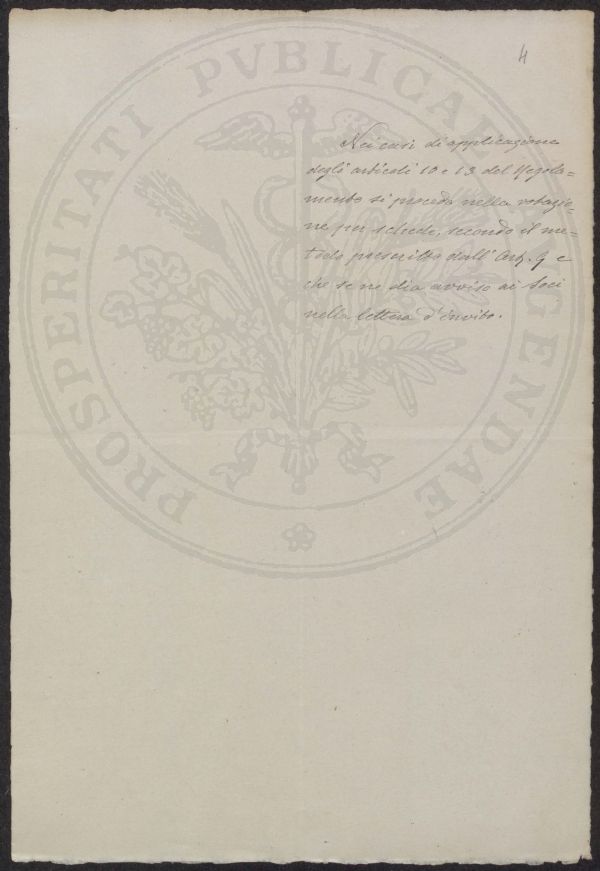 4
Nei casi di applicazione
degli articoli 10 e 13 del Regola=
mento si proceda nella votazio=
ne per schede, secondo il me=
todo prescritto dall'Art. 9 e
che se ne dia avviso ai Soci
nella lettera d'invito.
PROSPERITATI PVBLICAE AVGENDAE